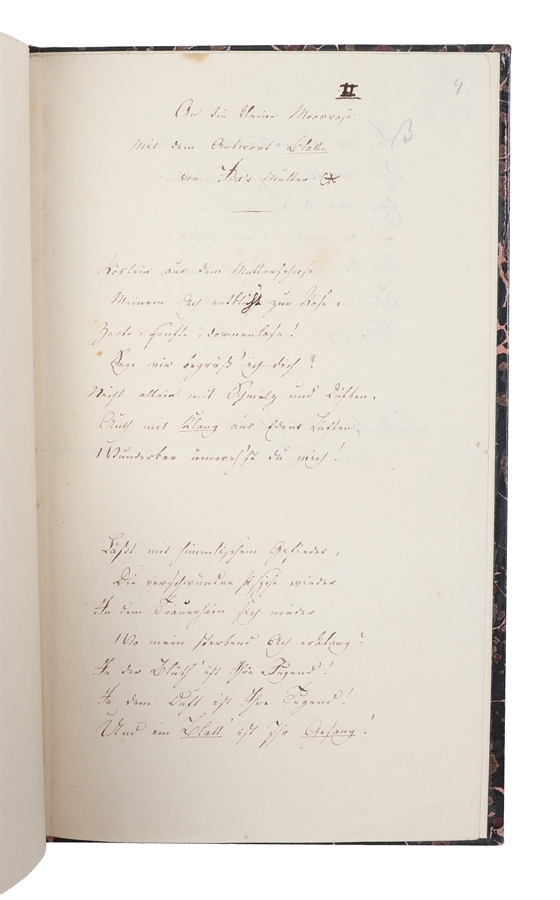 II
4
B
An die kleine Moosrose
Mit dem Antwort-Blatte
von Ida's Mutter
Röslein aus dem Mutterschoose
Meinem Ach entblüht zur Rose,
Zarte, sanfte, dornenlose!
Sage wie begrüß' ich dich?
Nicht allein mit Schmelz und Düften,
Auch mit Klang aus Edens Lüften
Wunderbar umwehst du mich!
Läßt mit himmlischem Gefieder,
Die verschwundne Psyche wieder
In dem Trauerhain sich nieder
Wo mein sterbend Ach erklang?
In der Blüth' ist Ihre Jugend!
In dem Duft ist Ihre Tugend!
Und im Blatt ist Ihr Gesang!